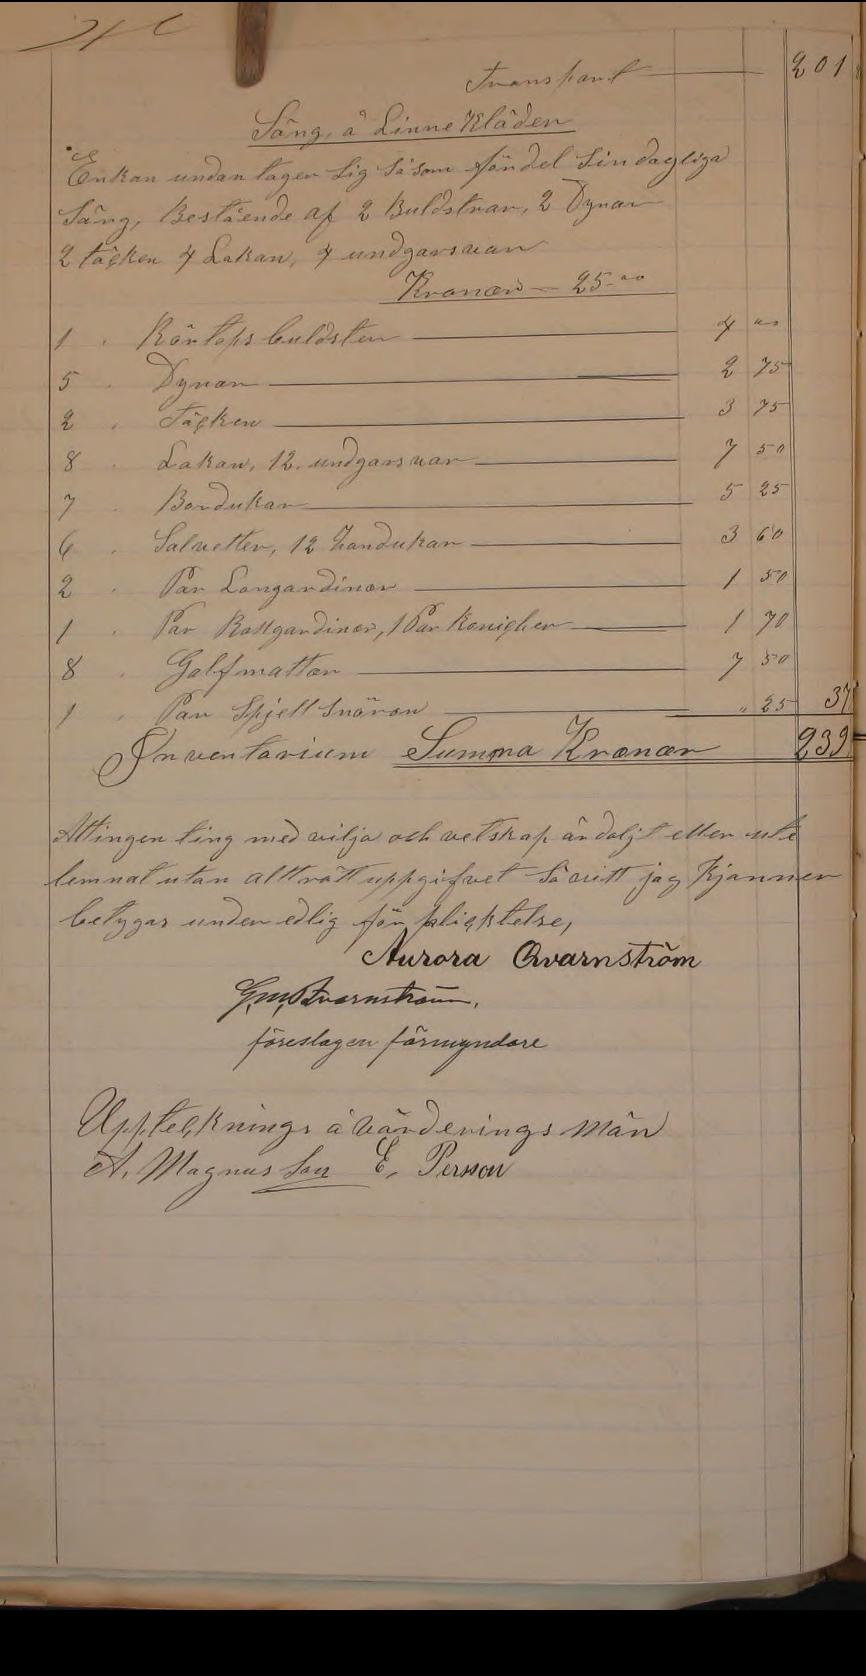 Transport 201
Säng, å Linne Kläder
Enkan undantager sig såsom fördel sin dagliga
Säng, Bestående af 2 Buldstrar, 2 Dynor
2 täcken 4 Lakan, 4 undgarsvar
Kronor — 25 "
1 " Körtops buldster 4 "
5 " Dynor 2 75
2 " Täcken 3 75
8 " Lakan, 12 undgarsvar 7 50
7 " Bordukar 5 25
6 " Salvetter, 12 handukar 3 60
2 " Par Longardinor 1 50
1 " Par Rollgardinor, 1 Par 1 70
8 " Golfmattor 7 50
1 " Par Spjell Snören " 25 37
Inventarium Summa Kronor 239
Attingen ting med vilja och vetskap är doljt eller ute
lemnat utan allt rätt uppgifvet så vitt jag kjänner
betygar under edlig för pligktelse,
Aurora Qvarnström
G.M. Qvarnström,
föreslagen förmyndare
Uppteknings å värderings män
A. Magnusson E. Person